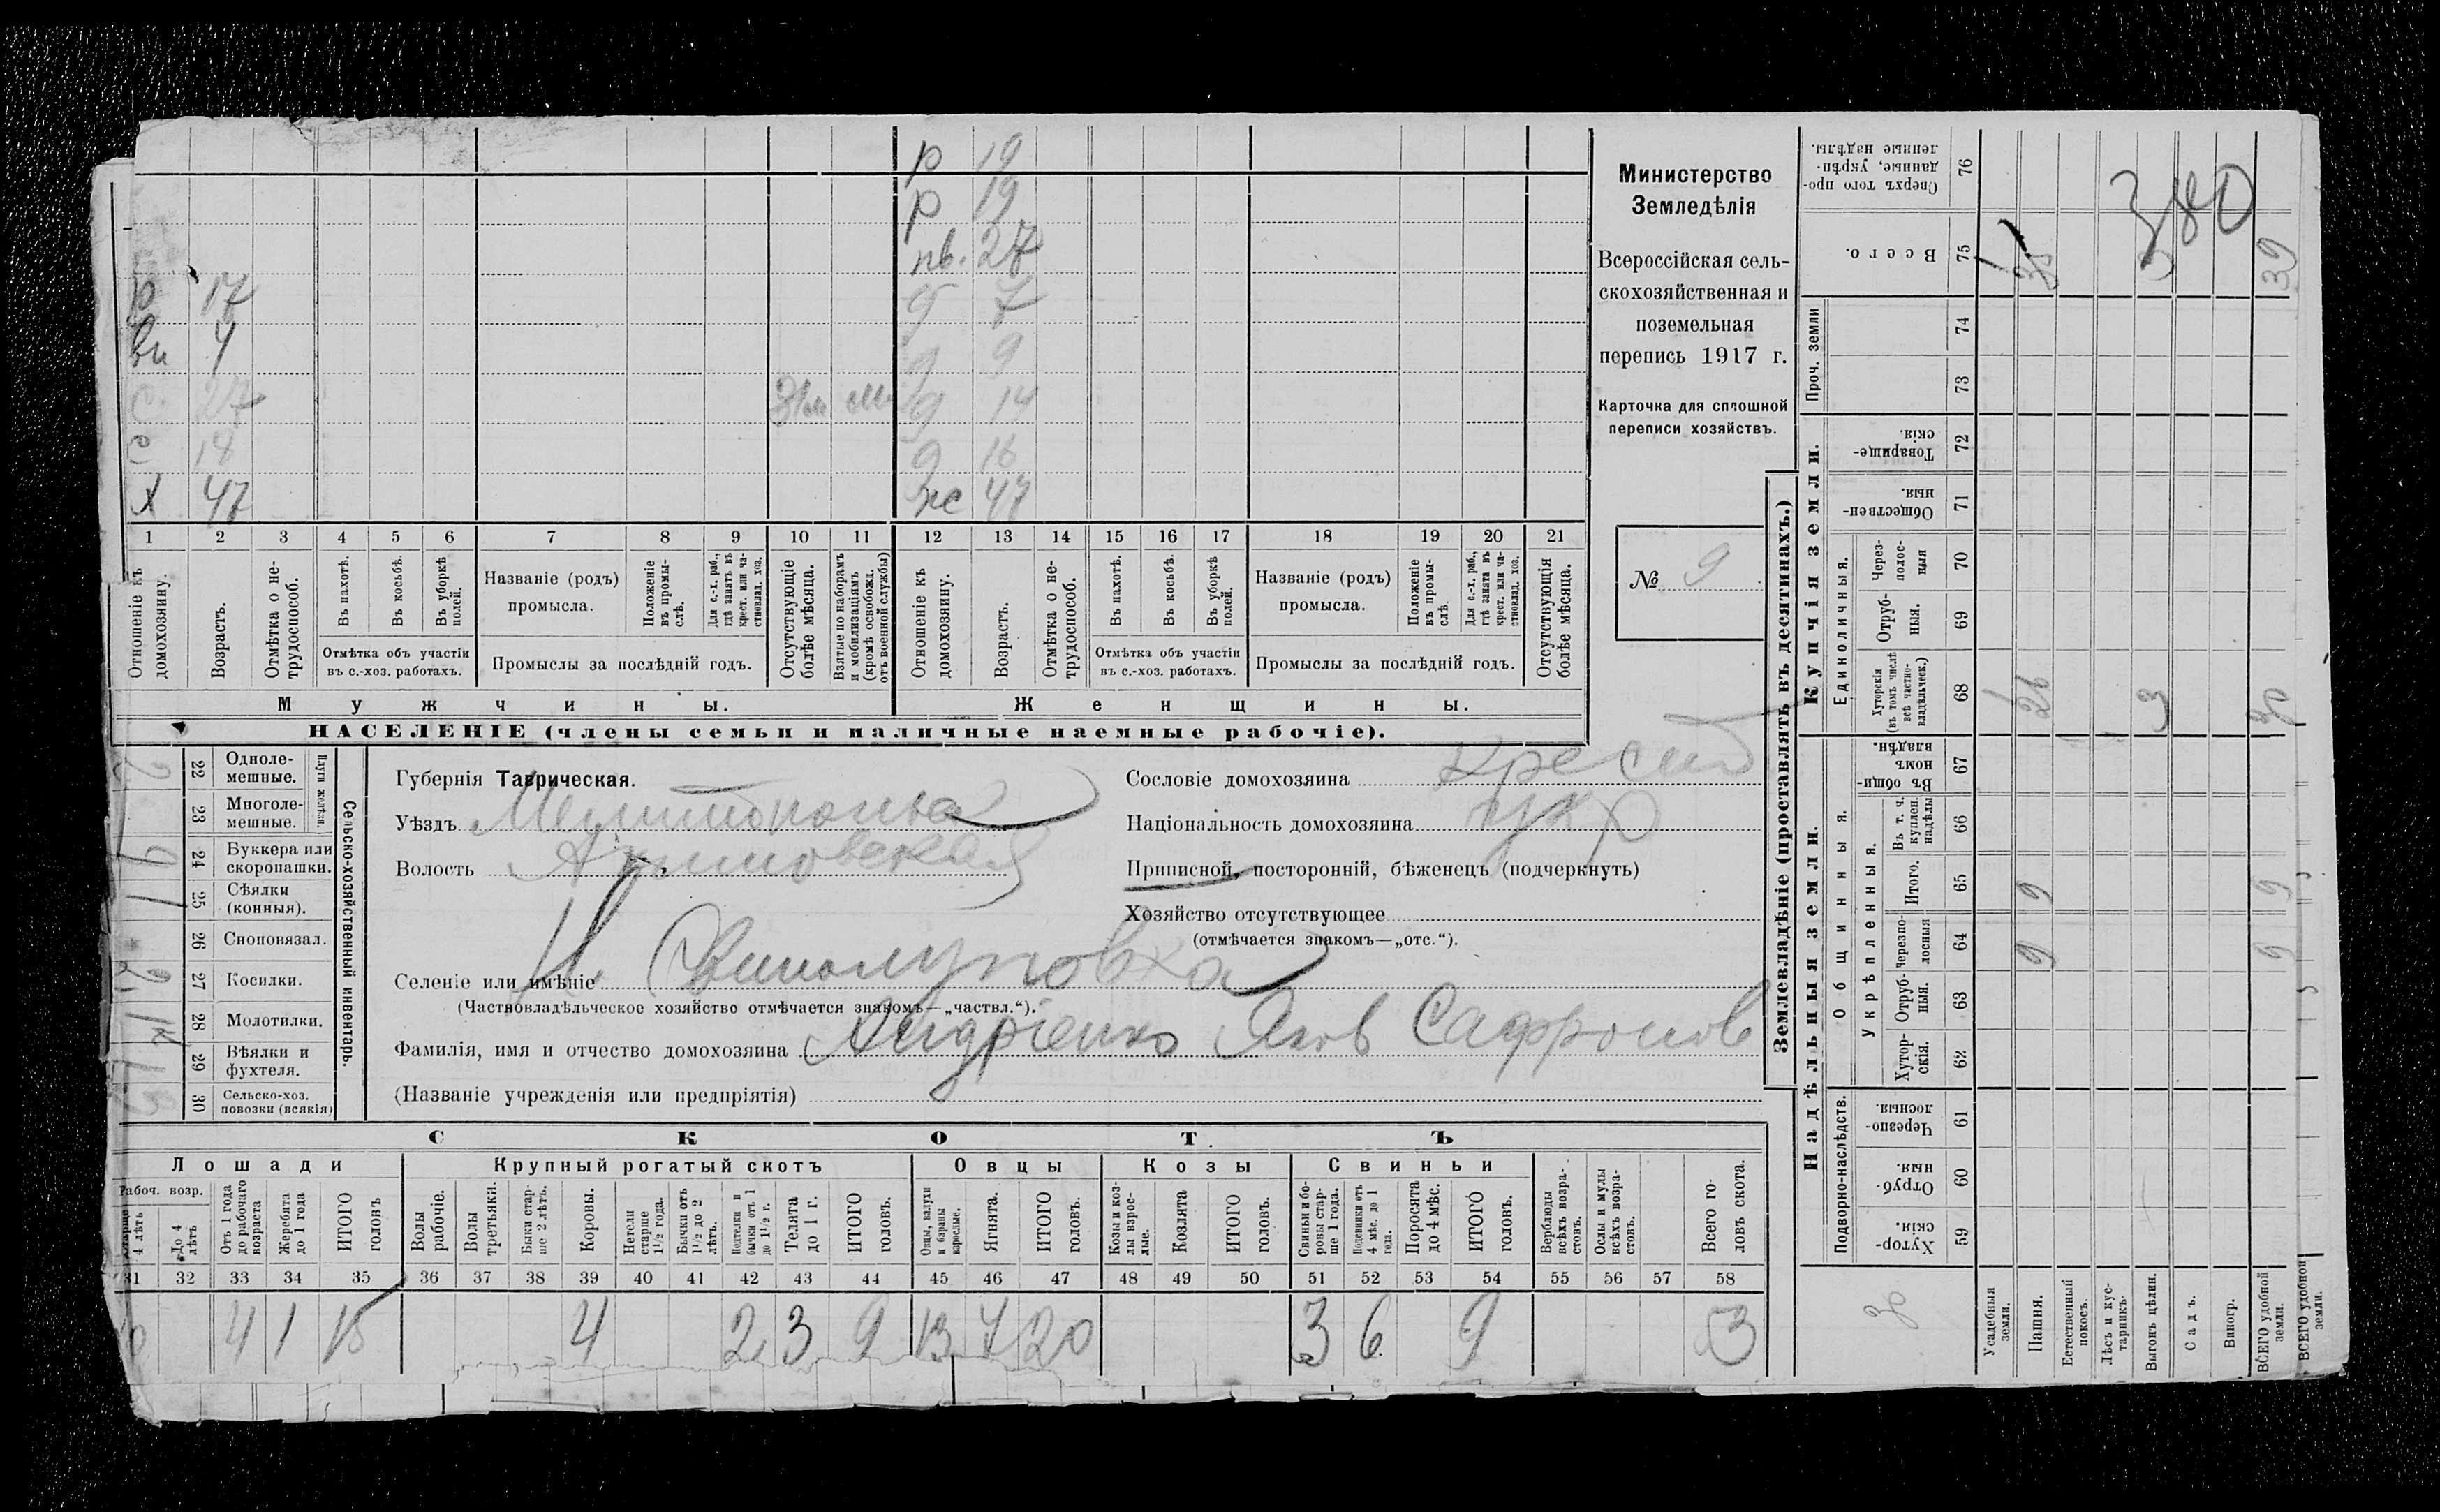 р 19
р 19
нв. 27
р 17 д 7
вн 4 д 9
с. 27 31м м д 14
с 14 д 16
х 47 же 47
1 2 3 4 5 6 7 8 9 10 11 12 13 14 15 16 17 18 19 20 21
Отношеніе къ домохозяину.
Возрастъ.
Отмѣтка о не-трудоспособ.
Въ пахотѣ.
Въ косьбѣ.
Въ уборкѣ полей.
Отмѣтка объ участіи
въ с.-хоз. работахъ.
Названіе (родъ)
промысла.
Положеніе въ промы-слѣ.
Для с.-х. раб., гдѣ занятъ въ крест. или ча-стновлад. хоз.
Промыслы за послѣдній годъ.
Отсутствующіе болѣе мѣсяца.
Взятые по наборамъ и мобилизаціямъ (кромѣ освобожд. отъ военной службы)
Отношеніе къ домохозяину.
Возрастъ.
Отмѣтка о не-трудоспособ.
Въ пахотѣ.
Въ косьбѣ.
Въ уборкѣ полей.
Отмѣтка объ участіи
въ с.-хоз. работахъ.
Названіе (родъ)
промысла.
Положеніе въ промы-слѣ.
Для с.-х. раб., гдѣ занята въ крест. или ча-стновлад. хоз.
Промыслы за послѣдній годъ.
Отсутствующія болѣе мѣсяца.
Мужчины. Женщины.
НАСЕЛЕНІЕ (члены семьи и наличные наемные рабочіе).
Министерство
Земледѣлія
Всероссійская сель-
скохозяйственная и
поземельная
перепись 1917 г.
Карточка для сплошной
переписи хозяйствъ.
№ 9
Сельско-хозяйственный инвентарь.
Плуги желѣзн.
22 Одноле-мешные. 2
23 Многоле-мешные.
24 Буккера или скоропашки.
25 Сѣялки (конныя). 1
26 Сноповязал.
27 Косилки. 2
28 Молотилки. 1к
29 Вѣялки и фухтеля. 1
30 Сельско-хоз. повозки (всякія)
Губернія Таврическая.
Уѣздъ Мелитопольс
Волость Акимовская
Селеніе или имѣніе Н Свинолуповка
(Частновладѣльческое хозяйство отмѣчается знакомъ—„частвл.“).
Фамилія, имя и отчество домохозяина Андріенко Яков Сафронов
(Названіе учрежденія или предпріятія)
Сословіе домохозяина крест
Національность домохозяина укр
Приписной, посторонній, бѣженецъ (подчеркнуть)
Хозяйство отсутствующее
(отмѣчается знакомъ—„отс.“).
СКОТЪ
Лошади Крупный рогатый скотъ Овцы Козы Свиньи
Рабоч. возр.
Старше 4 лѣтъ
До 4 лѣтъ
Отъ 1 года до рабочаго возраста
Жеребята до 1 года
ИТОГО головъ
Волы рабочіе.
Волы третьяки.
Быки стар-ше 2 лѣтъ.
Коровы.
Нетели старше 1½ года.
Бычки отъ 1½ до 2 лѣтъ.
Подтелки и бычки отъ 1 до 1½ г.
Телята до 1 г.
ИТОГО головъ.
Овцы, валухи и бараны взрослые.
Ягнята.
ИТОГО головъ.
Козы и коз-лы взрос-лые.
Козлята
ИТОГО головъ.
Свиньи и бо-ровы стар-ше 1 года.
Подсвинки отъ 4 мѣс. до 1 года.
Поросята до 4 мѣс.
ИТОГО головъ.
Верблюды всѣхъ возра-стовъ.
Ослы и мулы всѣхъ возра-стовъ.
Всего го-ловъ скота.
31 32 33 34 35 36 37 38 39 40 41 42 43 44 45 46 47 48 49 50 51 52 53 54 55 56 57 58
4 1 15 4 2 3 9 13 7 20 3 6 9 53
Землевладѣніе (проставлять въ десятинахъ.)
Надѣльныя земли. Купчія земли.
Подворно-наслѣдств.
Общинныя.
Укрѣпленныя.
Единоличныя.
Проч. земли
Хутор-скія. 59
Отруб-ныя. 60
Черезпо-лосныя. 61
Хутор-скія. 62
Отруб-ныя. 63
Черезпо-лосныя 64
Итого. 65
Въ т. ч. куплен. надѣлы 66
Въ общи-номъ владѣн. 67
Хуторскія (въ томъ числѣ всѣ частно-владѣльческ.) 68
Отруб-ныя. 69
Через-полос-ныя 70
Обществен-ныя. 71
Товарище-скія. 72
73
74
Всего. 75
Сверхъ того про-данные, укрѣп-ленные надѣлы. 76
Усадебныя земли. 1 1
Пашня. 9 9 26 35
Естественный покосъ.
Лѣсъ и кус-тарникъ.
Выгонъ цѣлин. 3 3
Садъ.
Виногр.
ВСЕГО удобной земли. 9 9 30 39
380
ВСЕГО удобной земли.